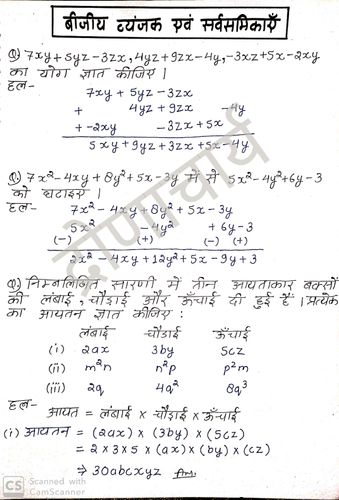 बीजीय व्यंजक एवं सर्वसमिकाएँ
Q) 7xy + 5yz - 3zx, 4yz + 9zx - 4y, -3xz + 5x - 2xy
का योग ज्ञात कीजिए ।
हल-
7xy + 5yz - 3zx
+ 4yz + 9zx - 4y
+ -2xy - 3zx + 5x
5xy + 9yz + 3zx + 5x - 4y
Q) 7x² - 4xy + 8y² + 5x - 3y में से 5x² - 4y² + 6y - 3
को घटाइए ।
हल-
7x² - 4xy + 8y² + 5x - 3y
5x² - 4y² + 6y - 3
(-) (+) (-) (+)
2x² - 4xy + 12y² + 5x - 9y + 3
Q) निम्नलिखित सारणी में तीन आयताकार बक्सों
की लंबाई, चौड़ाई और ऊँचाई दी हुई हैं । प्रत्येक
का आयतन ज्ञात कीजिए :
लंबाई चौडाई ऊँचाई
(i) 2ax 3by 5cz
(ii) m²n n²p p²m
(iii) 2q 4q² 8q³
हल-
आयत = लंबाई × चौड़ाई × ऊँचाई
(i) आयतन = (2ax) × (3by) × (5cz)
= 2 × 3 × 5 × (ax) × (by) × (cz)
⇒ 30abcxyz Ans.
द्रोणाचार्य
CS Scanned with
CamScanner